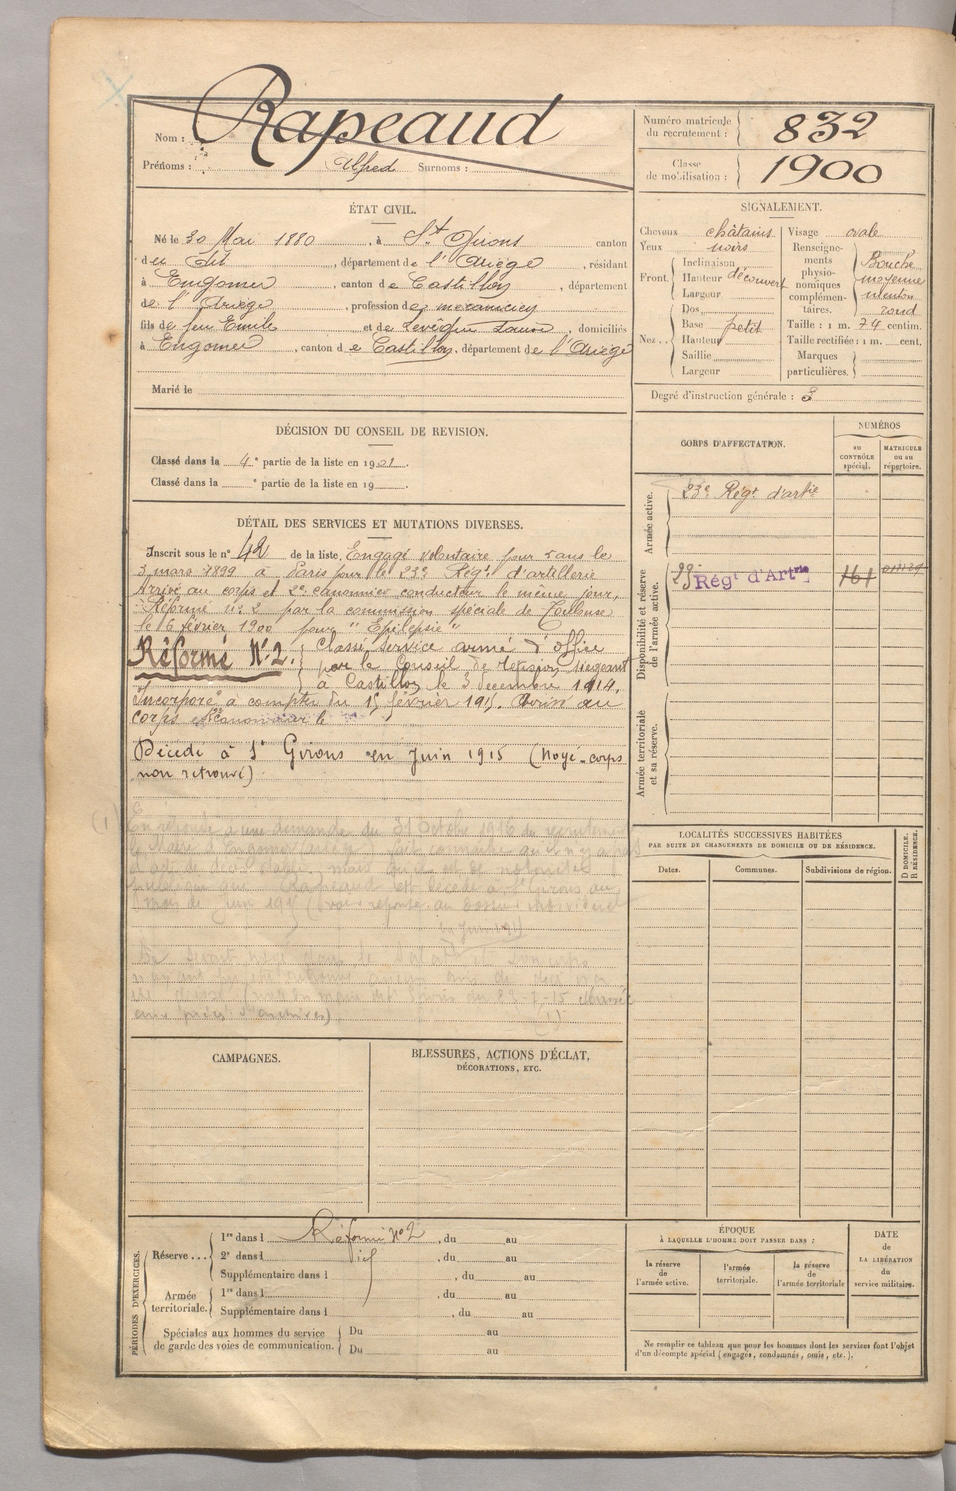 Nom : Rapeaud
Prénoms : Alfred Surnoms :
Numéro matricule du recrutement : 832
Classe de mobilisation : 1900
ÉTAT CIVIL.
Né le 30 Mai 1880, à St Girons canton
du dit, département de l'Ariège, résidant
à Engomer, canton de Castillon, département
de l'Ariège, profession de mecanicien
fils de feu Emile et de Levêque Laure, domiciliés
à Engomer, canton de Castillon, département de l'Ariège
Marié le
SIGNALEMENT.
Cheveux châtains
Yeux noirs
Front. Inclinaison
Hauteur découvert
Largeur
Nez. Dos
Base petit
Hauteur
Saillie
Largeur
Visage ovale
Renseignements physionomiques complémentaires. Bouche
moyenne
menton
rond
Taille : 1 m. 74 centim.
Taille rectifiée : 1 m. cent.
Marques particulières.
Degré d'instruction générale : 3
DÉCISION DU CONSEIL DE REVISION.
Classé dans la 4e partie de la liste en 1901.
Classé dans la e partie de la liste en 19 .
CORPS D'AFFECTATION.
NUMÉROS
au CONTRÔLE spécial.
MATRICULE ou au répertoire.
Armée active.
23e Régt d'artie
Disponibilité et réserve de l'armée active.
23e Régt d'Artrie 161
Armée territoriale et sa réserve.
DÉTAIL DES SERVICES ET MUTATIONS DIVERSES.
Inscrit sous le n° 42 de la liste Engagé volontaire pour 5 ans le
3 mars 1899 à Paris pour le 23e Régt d'artillerie
Arrivé au corps et 2e canonnier conducteur le même jour.
Réformé n° 2 par la commission spéciale de Toulouse
le 6 février 1900 pour "Epilepsie"
Réformé N° 2. Classé service armé d'office
par le Conseil de révision siégeant
à Castillon le 3 décembre 1914.
Incorporé à compter du 15 février 1915. Arrivé au
corps et canonnier le
Décédé à St Girons en Juin 1915 (Noyé - corps
non retrouvé)
(1) En réponse à une demande du 31 Octobre 1916 du recrutement
le Maire d'Engomer (Ariège) fait connaître qu'il n'y a pas
publique que Rapeaud est décédé à St Girons au
mois de Juin 1915 (voir réponse au dossier individuel
Juin 1915
Se serait noyé dans le Salat et son corps
aux pièces d'archives) (1)
LOCALITÉS SUCCESSIVES HABITÉES
PAR SUITE DE CHANGEMENTS DE DOMICILE OU DE RÉSIDENCE.
Dates.
Communes.
Subdivisions de région.
D DOMICILE.
R RÉSIDENCE.
CAMPAGNES.
BLESSURES, ACTIONS D'ÉCLAT,
DÉCORATIONS, ETC.
PÉRIODES D'EXERCICES.
Réserve ... 1re dans l Réformé N° 2, du au
2e dans l, du au
Supplémentaire dans l, du au
Armée territoriale. 1re dans l, du au
Supplémentaire dans l, du au
Spéciales aux hommes du service Du au
de garde des voies de communication. Du au
ÉPOQUE
À LAQUELLE L'HOMME DOIT PASSER DANS :
la réserve de l'armée active.
l'armée territoriale.
la réserve de l'armée territoriale
DATE
de
LA LIBÉRATION
du
service militaire.
Ne remplir ce tableau que pour les hommes dont les services font l'objet
d'un décompte spécial (engagés, condamnés, omis, etc.).